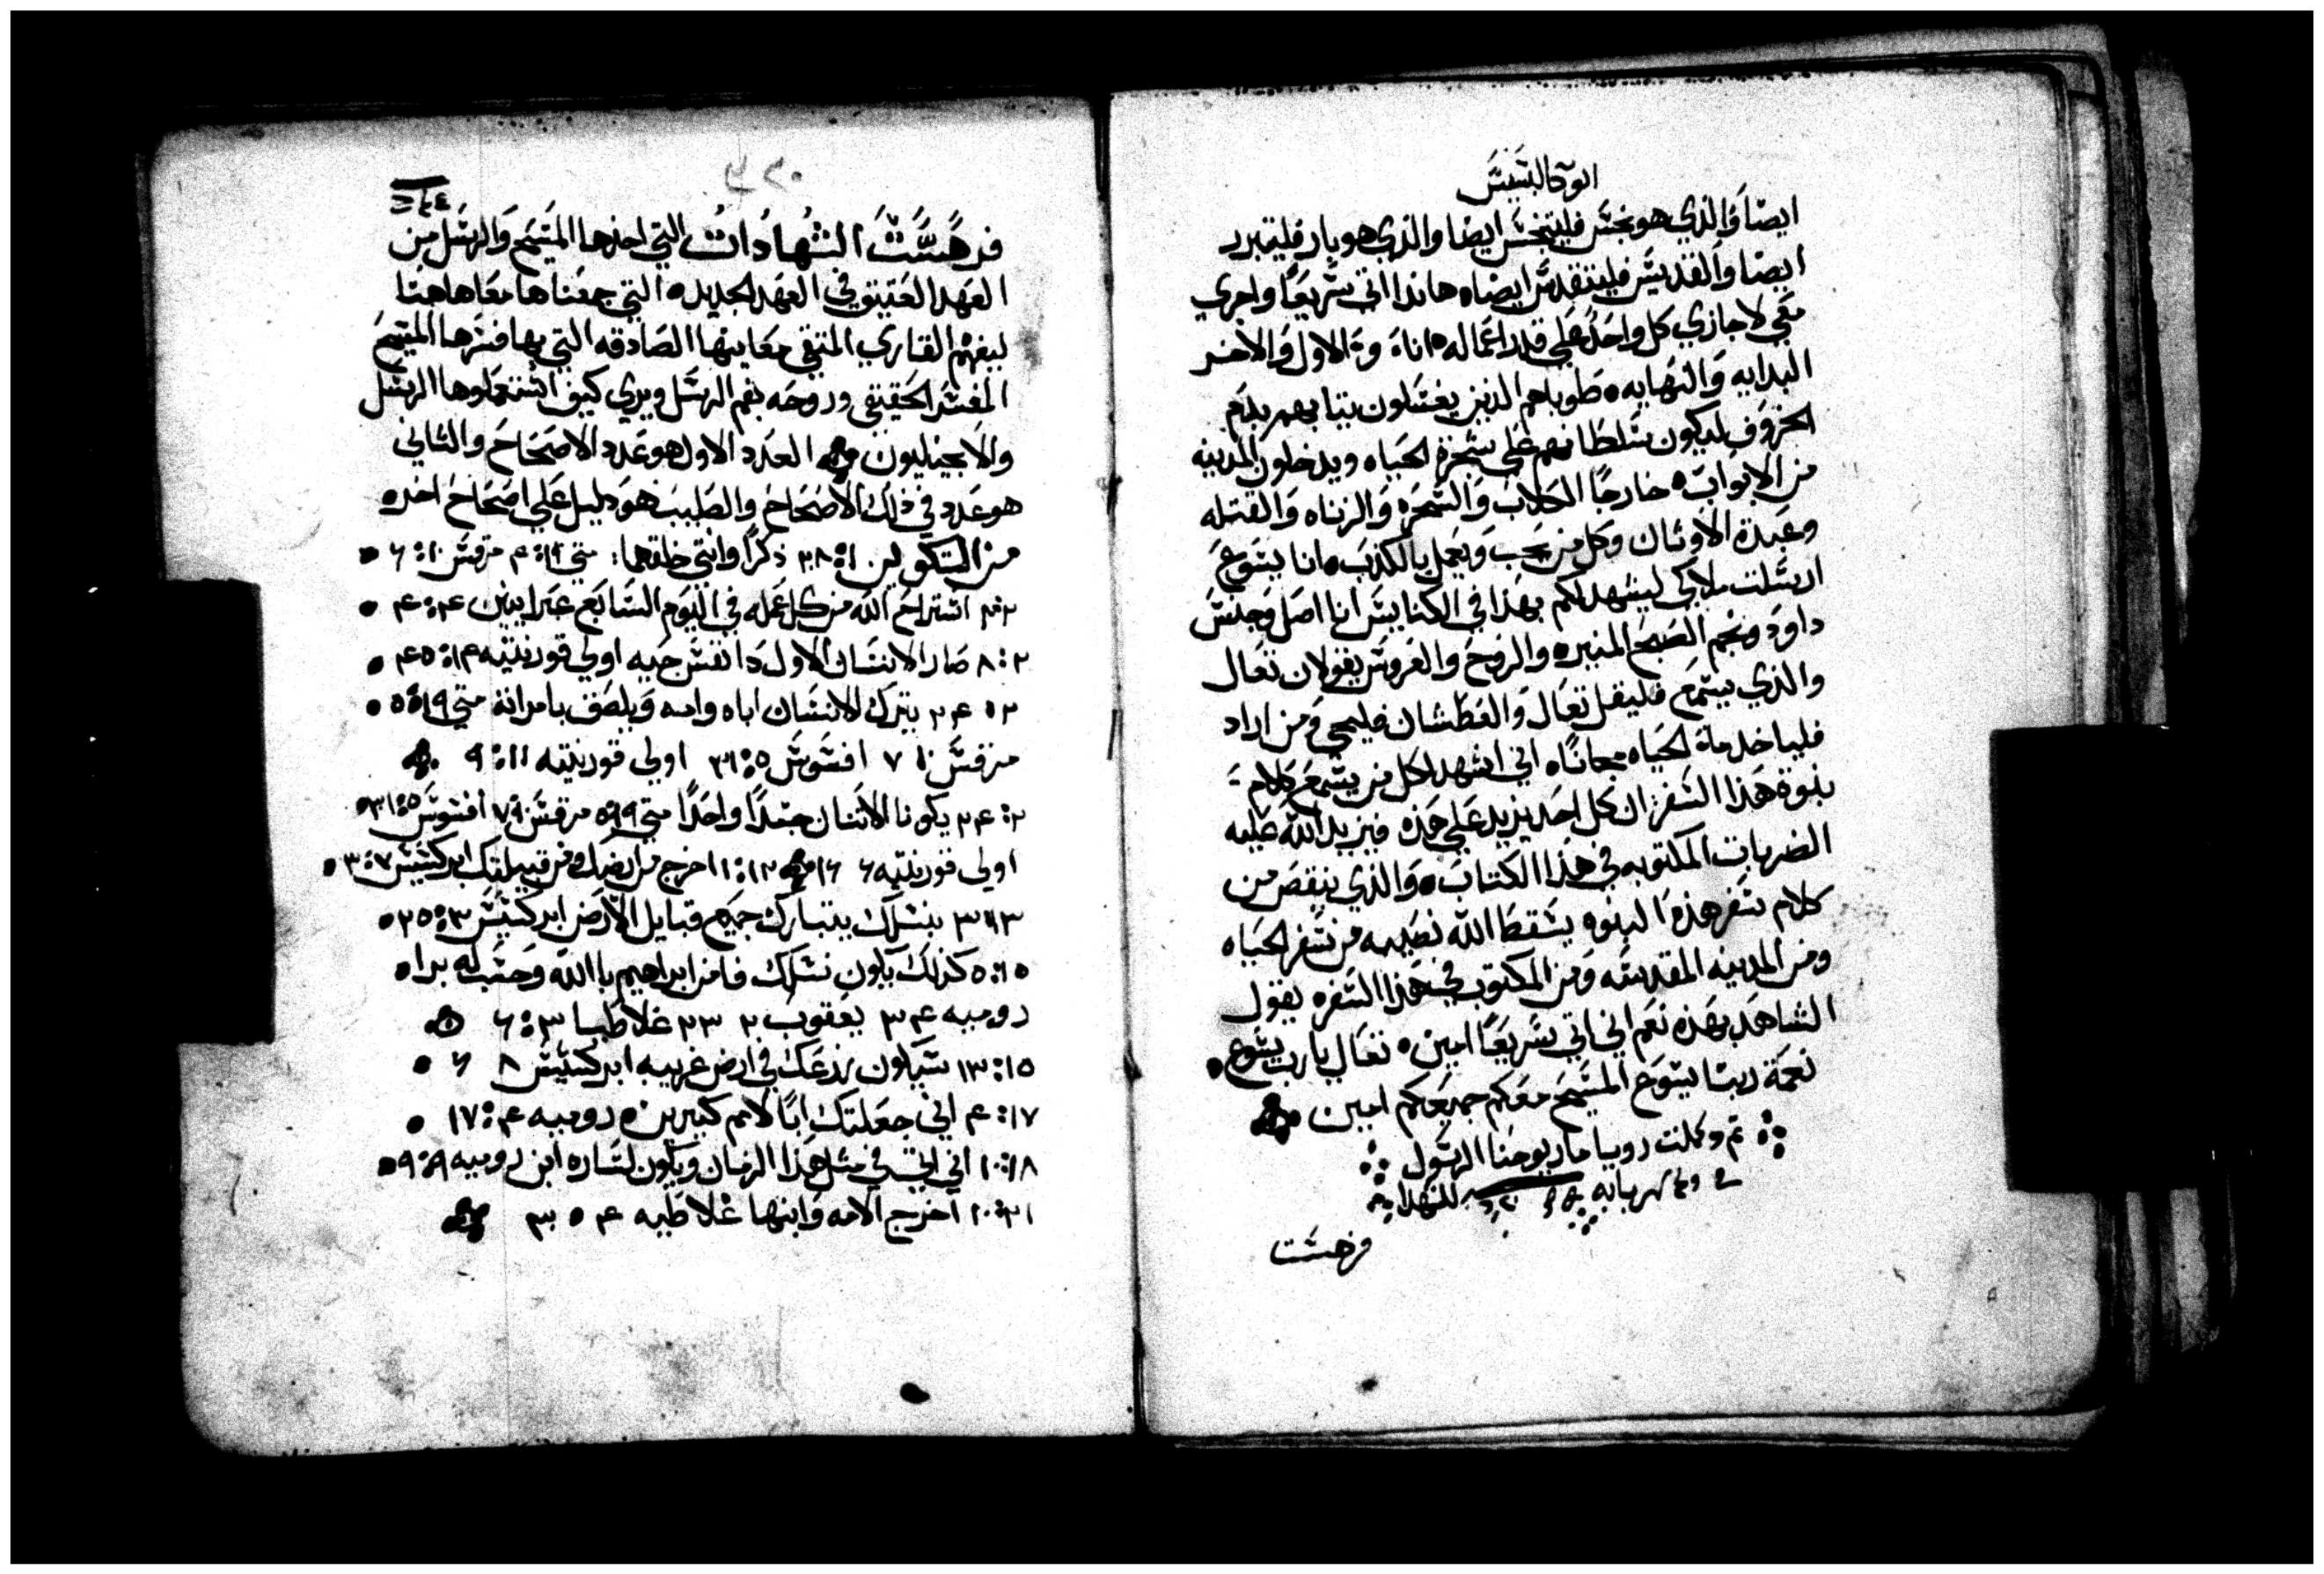 ابوكالبسيس
ايضا والذي هو نجس فليتنجس ايضا والذي هو بار فليتبرر
ايضا والقديس فليتقدس ايضاه هاندا اتي سريعًا واجري
معي لاجازي كل واحد علي قدر اعماله انا والاول والاخر
البدايه والنهايه طوباهم الذين يغسلون ثيابهم بدم
الخروف ليكون سلطانهم علي شجرة الحياه ويدخلون المدينه
من الابواب خارجًا الكلاب والسحره والزناه والقتله
وعبدة الاوثان وكل من يحب ويعمل بالكذب انا يسوع
ارسلت ملاكي ليشهد لكم بهذا في الكنايس انا اصل وجنس
داود ونجم الصبح المنيره والروح والعروس يقولان تعال
والذي يسمع فليقل تعال والعطشان فليجي ومن اراد
فلياخد ماة الحياه مجانًاه اني اشهد لكل من يسمع كلام
نبوة هذا السفر ان كل احد يزيد علي هذه فيزيد الله عليه
الضربات المكتوبه في هذا الكتاب والذي ينقص من
كلام سفر هذه النبوه يسقط الله نصيبه من سفر الحياه
ومن المدينه المقدسه ومن المكتوب في هذا السفره يقول
الشاهد بهذه نعم اني اتي سريعًا امين تعال يا رب يسوع
نعمة ربنا يسوع المسيح معكم جميعكم امين
تم وكملت رويا مار يوحنا الرسول
في بابه للشهدا
فرهست
٣٢٠
فرهسة الشهادات التي اخدها المسيح والرسل من
العهد العتيق في العهد الجديد التي جمعناها معًا هاهنا
ليفهم القاري المتقي معاينها الصادقه التي بها فسرها المسيح
المفسر الحقيقي وروحه بفم الرسل ويري كيف استعملوها الرسل
والانجيليون العدد الاول هو عدد الاصحاح والثاني
هو عدد في ذلك الاصحاح والصليب هو دليل علي اصحاح اخره
من التكوين ١: ٢٨ ذكرًا وانتي خلقهما: متي ١٩: ٤ مرقس ١٠: ٦
٢:٢ استراح الله من كل عمله في اليوم السابع عبرانيين ٤: ٤
٢: ٨ صار الانسان الاول دا نفس حيه اولي قورنتيه ١٤: ٤٥
٢: ٢٤ يترك الانسان اباه وامه ويلصق بامراته متي ١٩: ٥
مرقس ١٠ ٧ افسوس ٥: ٣١ اولي قورنتيه ١١: ٩
٢: ٢٤ يكونا الاتنان جسدًا واحدًا متي ١٩: ٥ مرقس ٩: ٧ افسوس ٥: ٣١
اولي قورنتيه ٦ ١٦ ١٢: ١ اخرج من ارضك ومن قبيلتك ابركسيس ٧: ٣
١٢: ٣ بنسلك يتبارك جميع قبايل الارض ابركسيس ٣: ٢٥
١٥: ٥ كذلك يكون نسلك فامن ابراهيم بالله وحسب له برا
روميه ٤ ٣ يعقوب ٢ ٢٣ غلاطيا ٣: ٦
١٥: ١٣ سيكون زرعك في ارض غريبه ابركسيس ٨ ٦
١٧: ٤ اني جعلتك ابًا لامم كثيرين روميه ٤: ١٧
١٨: ١٠ اني اتي في مثل هذا الزمان ويكون لساره ابن روميه ٩: ٩
٢١: ١٠ اخرج الامه وابنها غلاطيه ٤ ٣٠